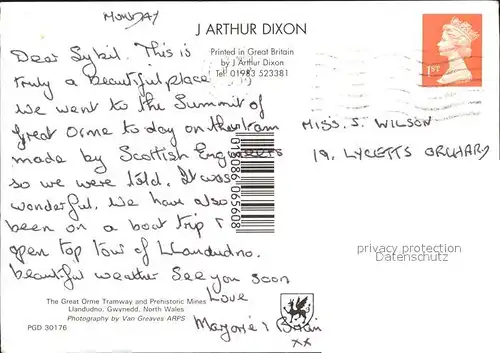 MONDAY
J ARTHUR DIXON
Printed in Great Britain
by J Arthur Dixon
Tel: 01983 523381
1ST
Dear Sybil. This is
truly a beautiful place
we went to the Summit of
great Orme to day on the tram
made by Scottish Engineers
so we were told. It was
wonderful. We have also
been on a boat trip &
open top tour of Llandudno.
beautiful weather See you soon
Love
Marjorie & Brian
xx
MISS. S. WILSON
19. LYCETTS ORCHARD
5013086065608
privacy protection
Datenschutz
The Great Orme Tramway and Prehistoric Mines
Llandudno, Gwynedd, North Wales
Photography by Van Greaves ARPS
PGD 30176